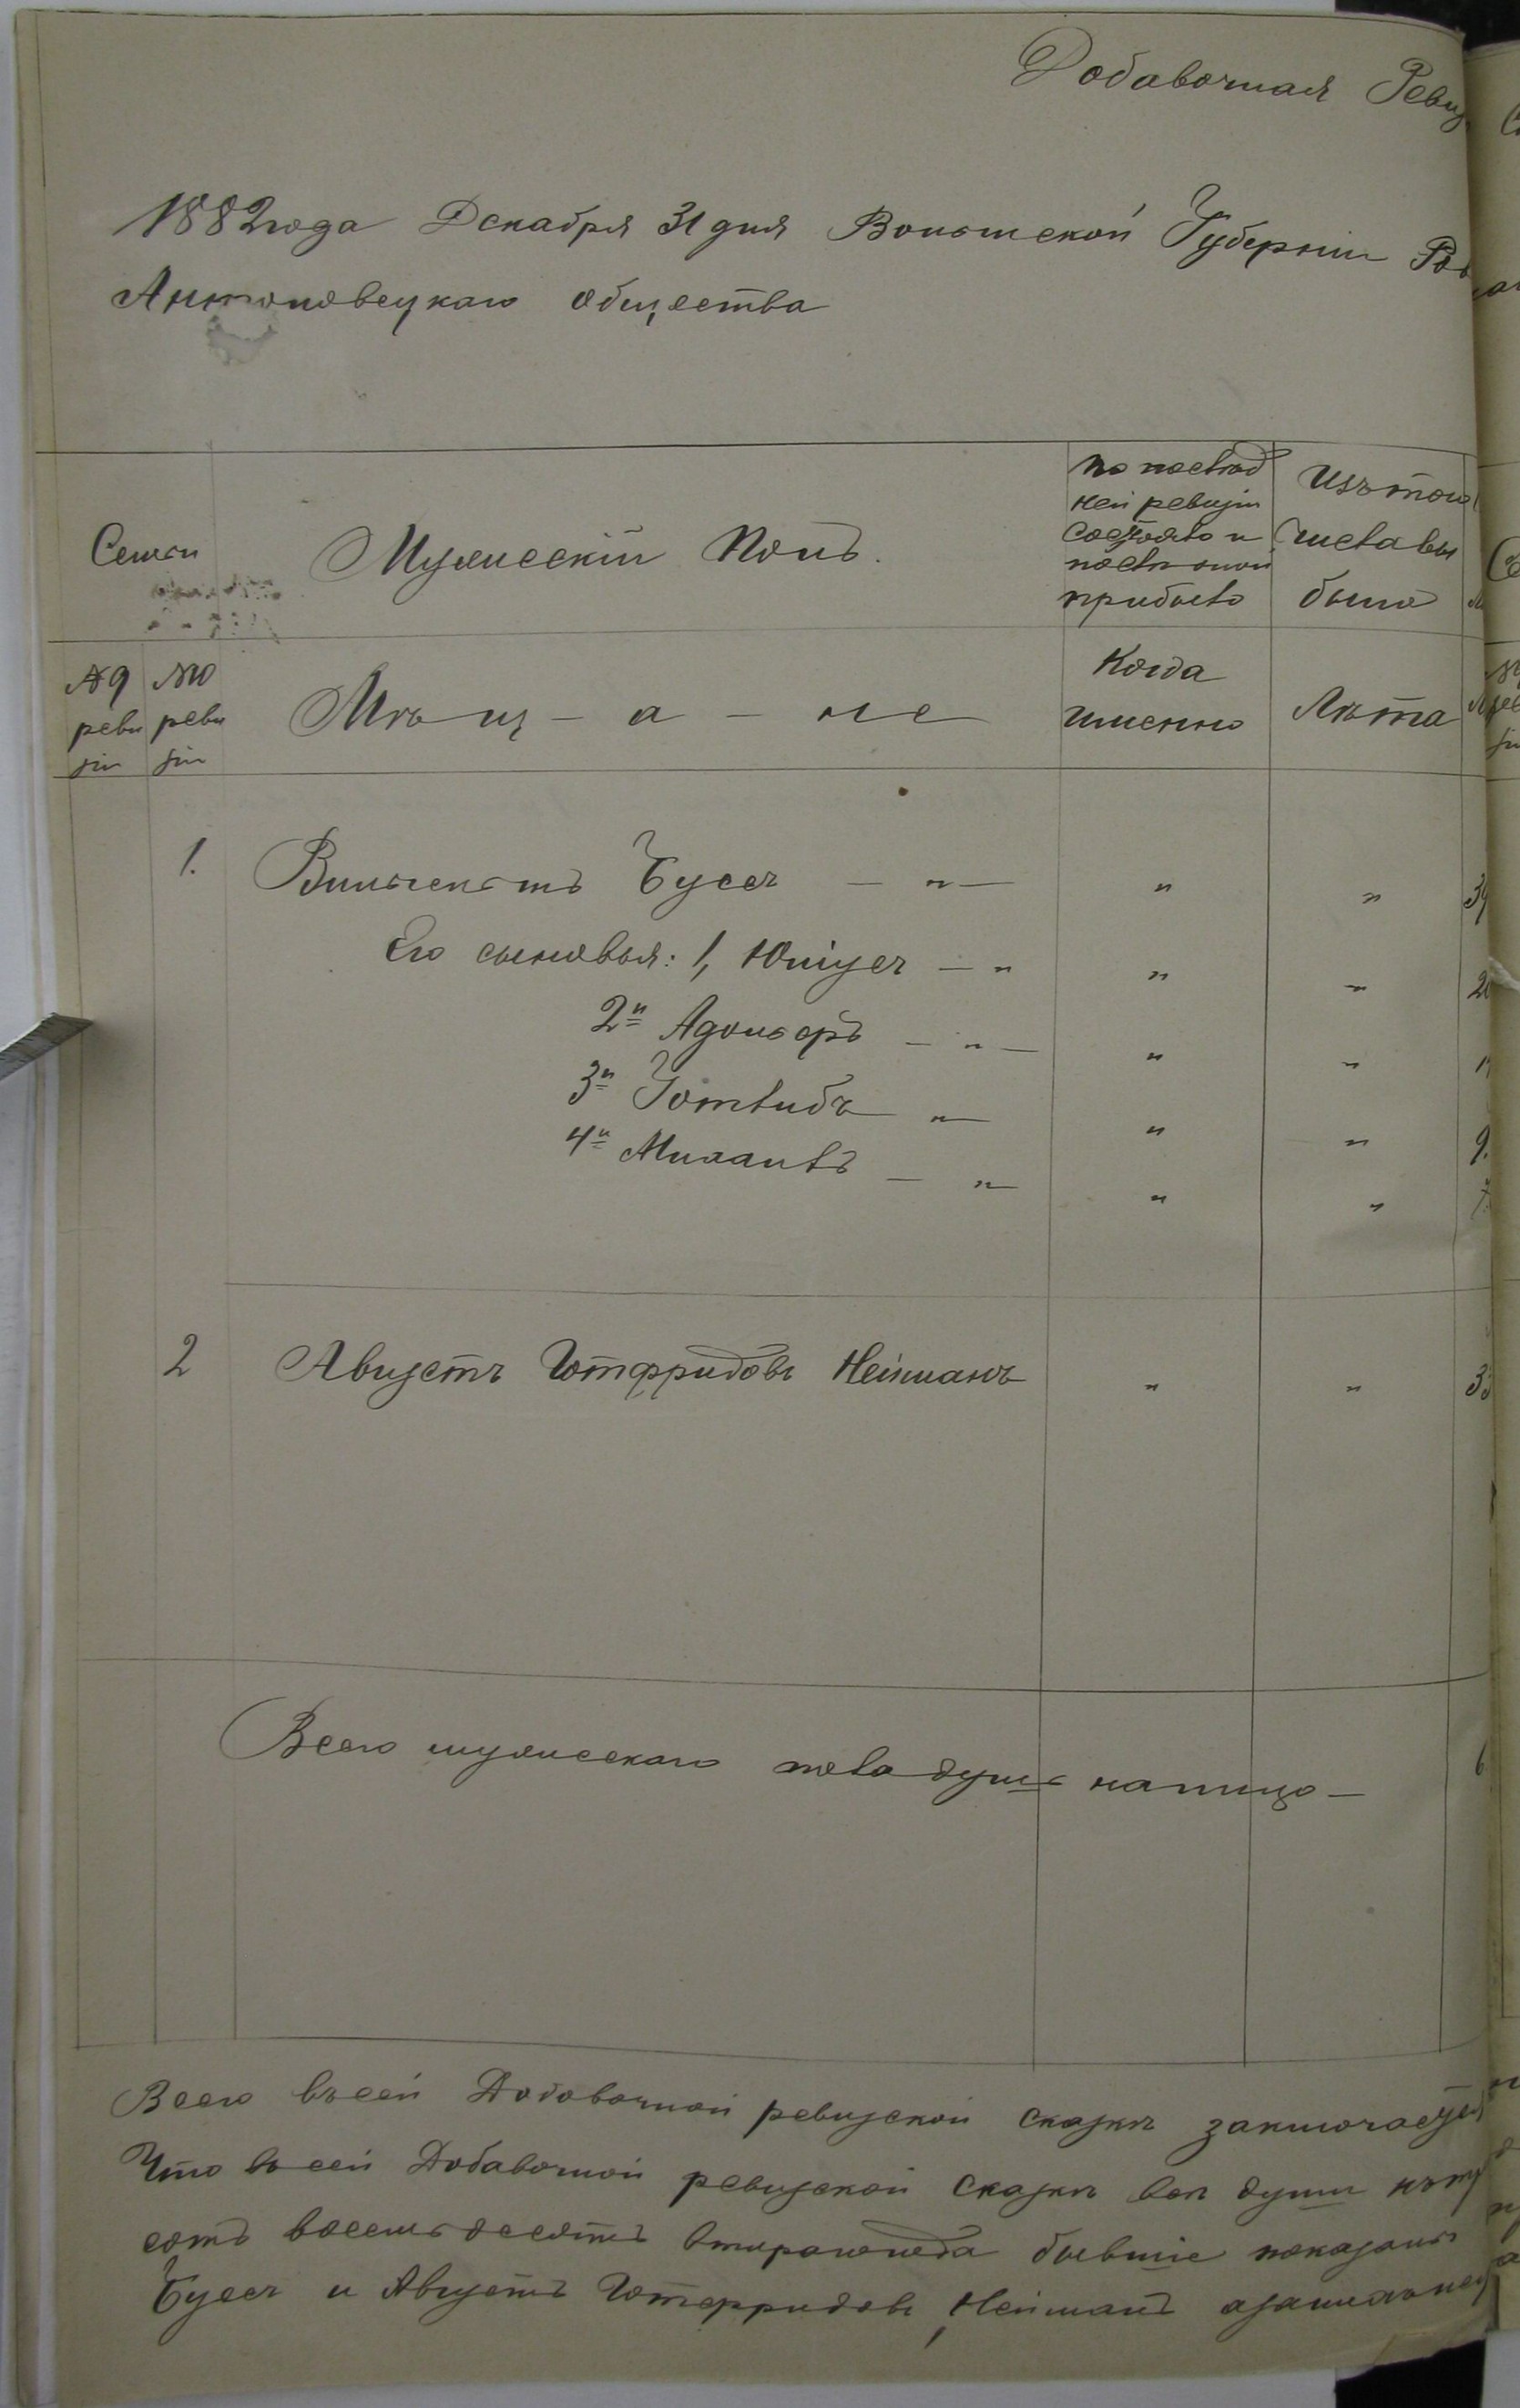 Добавочная Ревиз
1882 года Декабря 31 дня Волынской Губерніи Ров
Антоновецкаго общества
Семьи
Мужескій Полъ.
По послѣд
ней ревизіи
состояло и
послѣ оной
прибыло
Изъ того
числа вы
было
№9
реви
зіи
№10
реви
зіи
Мѣщ - а - не
Когда
именно
Лѣта
1. Вильгельмъ Буссъ — " — " " 39
Его сыновья: 1, Юліусъ — " " " 20
2й Адольфъ — " — " "
3й Готлибъ " — " " 9.
4й Михаилъ — " — " "
2 Августъ Готфридовъ Нейманъ " " 33
Всего мужескаго пола душъ налицо — 6
Всего въ сей Добовочной ревизской сказкѣ заключается
Что въ сей Добавочной ревизской сказкѣ всѣ души
сотъ восемьдесятъ втораго года бывшіе показаны
Буссъ и Августъ Готфридовъ Нейманъ